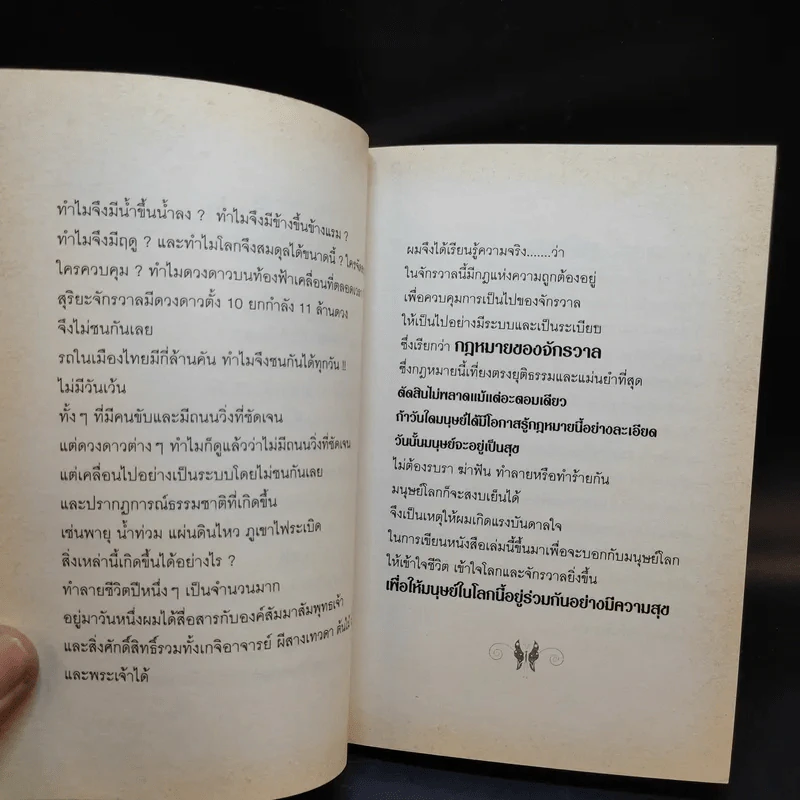 ทำไมจึงมีน้ำขึ้นน้ำลง ? ทำไมจึงมีข้างขึ้นข้างแรม ?
ทำไมจึงมีฤดู ? และทำไมโลกจึงสมดุลได้ขนาดนี้ ?
ใครควบคุม ? ทำไมดวงดาวบนท้องฟ้าเคลื่อนที่ตลอดเวลา
สุริยะจักรวาลมีดวงดาวตั้ง 10 ยกกำลัง 11 ล้านดวง
จึงไม่ชนกันเลย
รถในเมืองไทยมีกี่ล้านคัน ทำไมจึงชนกันได้ทุกวัน !!
ไม่มีวันเว้น
ทั้งๆ ที่มีคนขับและมีถนนวิ่งที่ชัดเจน
แต่ดวงดาวต่างๆ ทำไมก็ดูแล้วว่าไม่มีถนนวิ่งที่ชัดเจน
แต่เคลื่อนไปอย่างเป็นระบบโดยไม่ชนกันเลย
และปรากฏการณ์ธรรมชาติที่เกิดขึ้น
เช่นพายุ น้ำท่วม แผ่นดินไหว ภูเขาไฟระเบิด
สิ่งเหล่านี้เกิดขึ้นได้อย่างไร ?
ทำลายชีวิตปีหนึ่งๆ เป็นจำนวนมาก
อยู่มาวันหนึ่งผมได้สื่อสารกับองค์สัมมาสัมพุทธเจ้า
และสิ่งศักดิ์สิทธิ์รวมทั้งเกจิอาจารย์ ผีสางเทวดา ต้นไม้
และพระเจ้าได้
ผมจึงได้เรียนรู้ความจริง.......ว่า
ในจักรวาลนี้มีกฎแห่งความถูกต้องอยู่
เพื่อควบคุมการเป็นไปของจักรวาล
ให้เป็นไปอย่างมีระบบและเป็นระเบียบ
ซึ่งเรียกว่า กฎหมายของจักรวาล
ซึ่งกฎหมายนี้เที่ยงตรงยุติธรรมและแม่นยำที่สุด
ตัดสินไม่พลาดแม้แต่อะตอมเดียว
ถ้าวันใดมนุษย์ได้มีโอกาสรู้กฎหมายนี้อย่างละเอียด
วันนั้นมนุษย์จะอยู่เป็นสุข
ไม่ต้องรบรา ฆ่าฟัน ทำลายหรือทำร้ายกัน
มนุษย์โลกก็จะสงบเย็นได้
จึงเป็นเหตุให้ผมเกิดแรงบันดาลใจ
ในการเขียนหนังสือเล่มนี้ขึ้นมาเพื่อจะบอกกับมนุษย์โลก
ให้เข้าใจชีวิต เข้าใจโลกและจักรวาลยิ่งขึ้น
เพื่อให้มนุษย์ในโลกนี้อยู่ร่วมกันอย่างมีความสุข